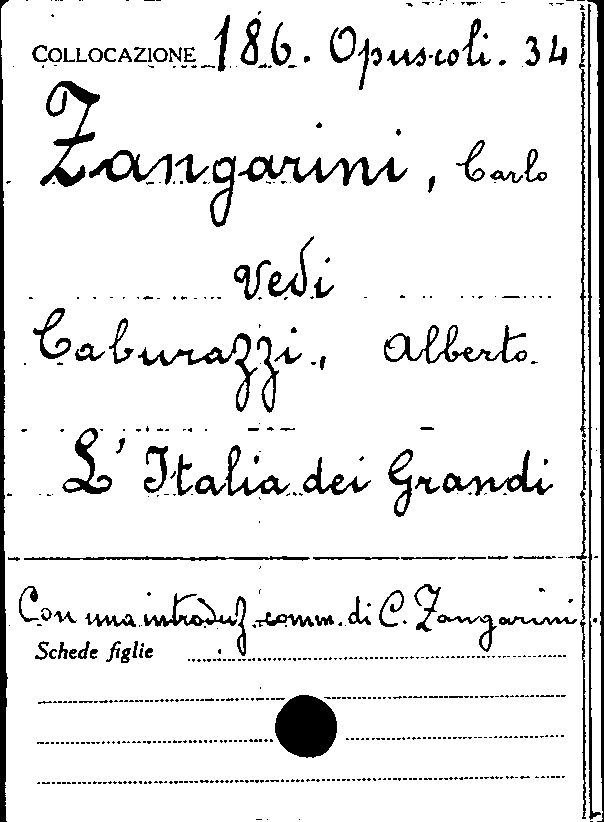 COLLOCAZIONE 186. Opuscoli. 34
Zangarini, Carlo
Vedi
Caburazzi, Alberto.
L'Italia dei Grandi
Con una introduz. comm. di C. Zangarini.
Schede figlie